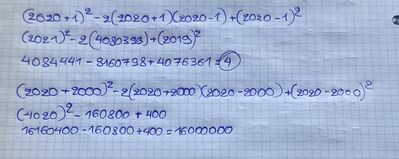 (2020+1)² - 2(2020+1)(2020-1) + (2020-1)²
(2021)² - 2(4080399) + (2019)²
4084441 - 8160798 + 4076361 = 4
(2020+2000)² - 2(2020+2000)(2020-2000) + (2020-2000)²
(4020)² - 160800 + 400
16160400 - 160800 + 400 = 16000000